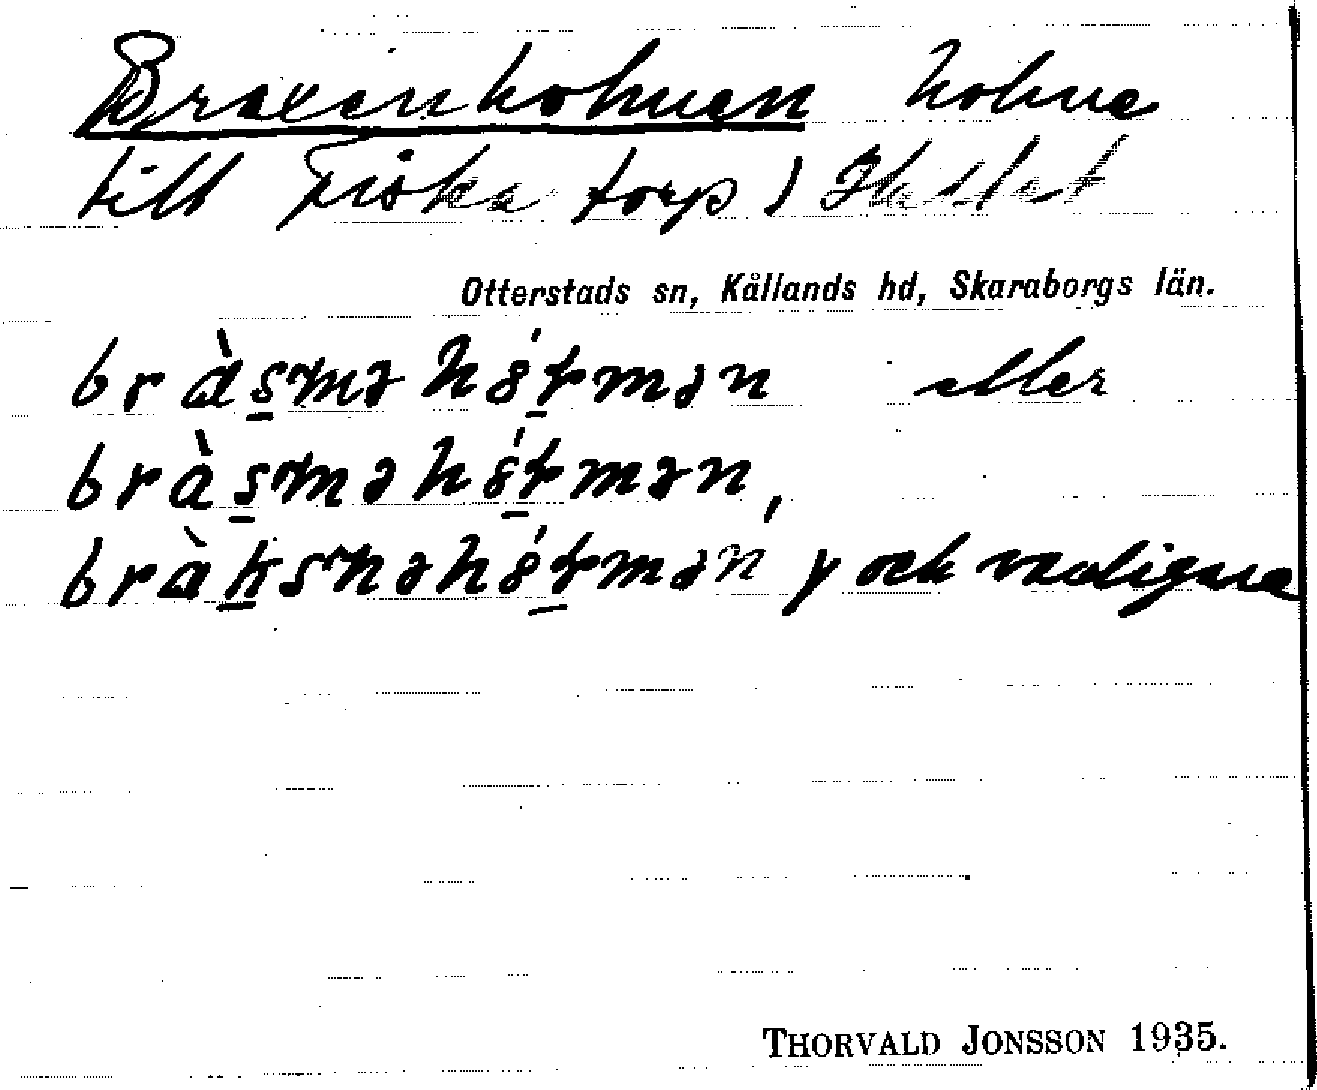 Braxenholmen holme
till Fiskatorp, Hallet
Otterstads sn, Kållands hd, Skaraborgs län.
bràsməhólmən eller
bràsməhólmən,
bràksnəhólmən y och vanligare
THORVALD JONSSON 1935.